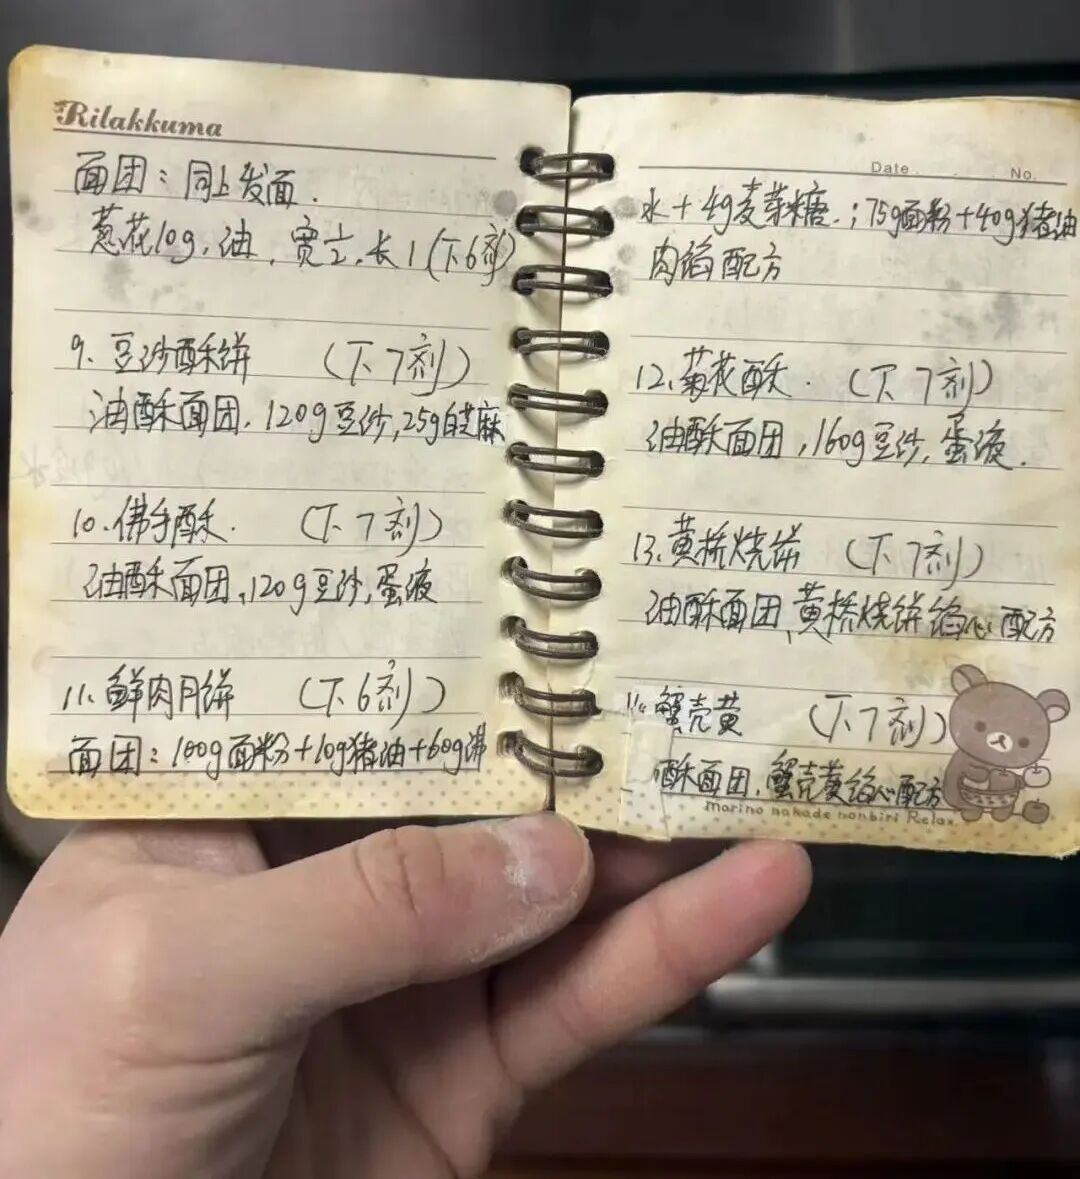 Rilakkuma
面团：同上发面.
葱花10g,油,宽 ,长1(下6剂)
9、豆沙酥饼 (下7剂)
油酥面团,120g豆沙,25g白芝麻
10、佛手酥. (下7剂)
油酥面团,120g豆沙,蛋液
11、鲜肉月饼 (下6剂)
面团：100g面粉+10g猪油+60g沸
Date No.
水+4g麦芽糖.;75g面粉+40g猪油
肉馅配方
12、菊花酥. (下7剂)
油酥面团,160g豆沙,蛋液.
13、黄桥烧饼 (下7剂)
油酥面团、黄桥烧饼馅心配方
14.蟹壳黄 (下7剂)
酥面团,蟹壳黄馅心配方
marino nakade nonbiri Relax.